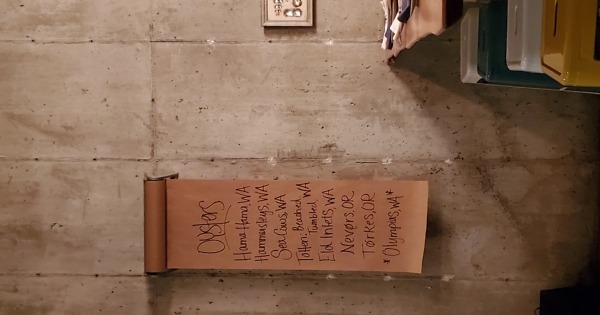 Oysters
Hama Hama, WA
Hammersleys, WA
Sea Cows, WA
Totten: Beached
Tumbled WA
Eld Inlets, WA
Nevørs, OR
Tørkes, OR
*Olympias, WA*